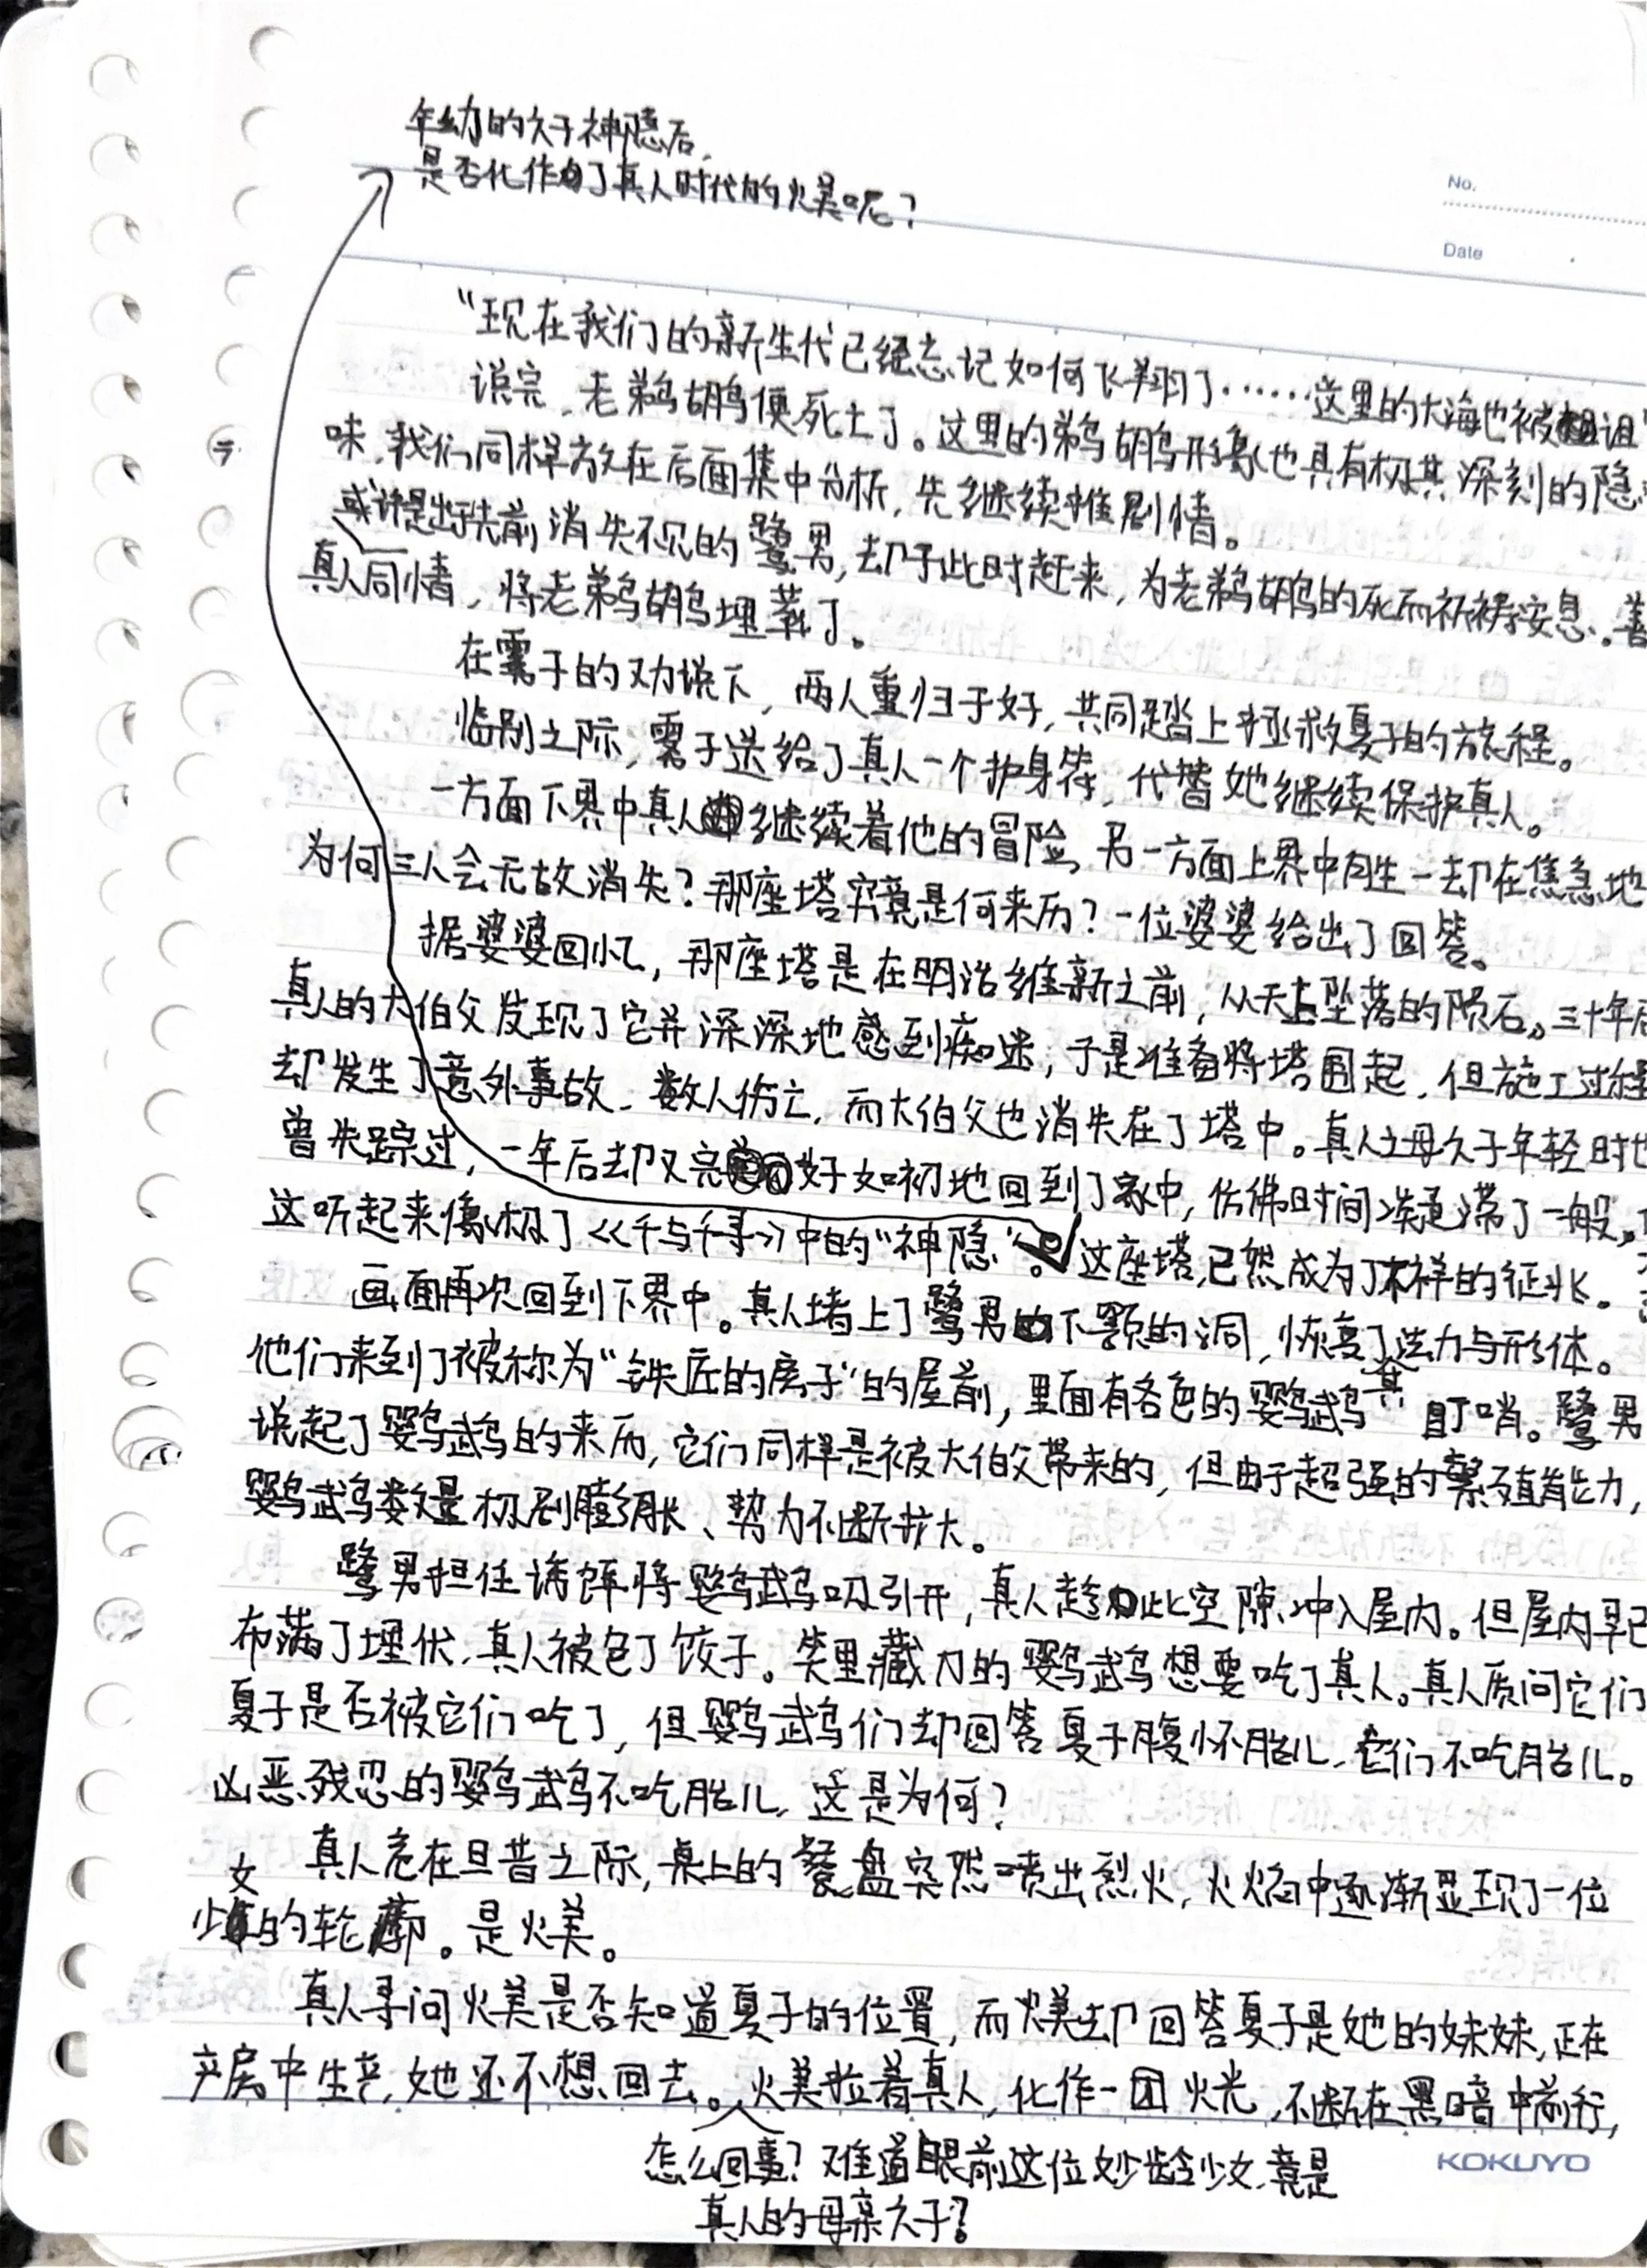 年幼的久子神隐后，
是否化作了真人时代的火美呢？
No.
Date
“现在我们的新生代已经忘记如何飞翔了……这里的大海也被诅
说完，老鹈鹕便死去了。这里的鹈鹕形象也具有极其深刻的隐
味，我们同样放在后面集中分析，先继续推剧情。
先前消失不见的鹭男，却于此时赶来，为老鹈鹕的死而祈祷安息。善
或许是出于
真人同情，将老鹈鹕埋葬了。
在雾子的劝说下，两人重归于好，共同踏上拯救夏子的旅程。
临别之际，雾子送给了真人一个护身符，代替她继续保护真人。
一方面下界中真人继续着他的冒险，另一方面上界中胜一却在焦急地
为何三人会无故消失？那座塔究竟是何来历？一位婆婆给出了回答。
据婆婆回忆，那座塔是在明治维新之前，从天上坠落的陨石。三十年后
真人的大伯父发现了它并深深地感到痴迷，于是准备将塔围起，但施工过程
却发生了意外事故，数人伤亡，而大伯父也消失在了塔中。真人之母久子年轻时也
曾失踪过，一年后却又完好如初地回到了家中，仿佛时间凝滞了一般。
这听起来像极了《千与千寻》中的“神隐”。这座塔，已然成为了不祥的征兆。
画面再次回到下界中。真人堵上了鹭男下颚的洞，恢复了法力与形体。
他们来到了被称为“铁匠的房子”的屋前，里面有各色的鹦鹉其盯哨。鹭男
说起了鹦鹉的来历，它们同样是被大伯父带来的，但由于超强的繁殖能力，
鹦鹉数量极剧膨胀、势力不断扩大。
鹭男担任诱饵将鹦鹉吸引开，真人趁此空隙冲入屋内。但屋内早已
布满了埋伏，真人被包了饺子。笑里藏刀的鹦鹉想要吃了真人。真人质问它们
夏子是否被它们吃了，但鹦鹉们却回答夏子腹怀胎儿，它们不吃胎儿。
凶恶残忍的鹦鹉不吃胎儿，这是为何？
真人危在旦昔之际，桌上的餐盘突然喷出烈火，火焰中逐渐显现了一位
少女的轮廓。是火美。
真人寻问火美是否知道夏子的位置，而火美却回答夏子是她的妹妹，正在
产房中生产，她还不想回去。火美拉着真人，化作一团火光，不断在黑暗中前行，
怎么回事？难道眼前这位妙龄少女，竟是
真人的母亲久子？
KOKUYO